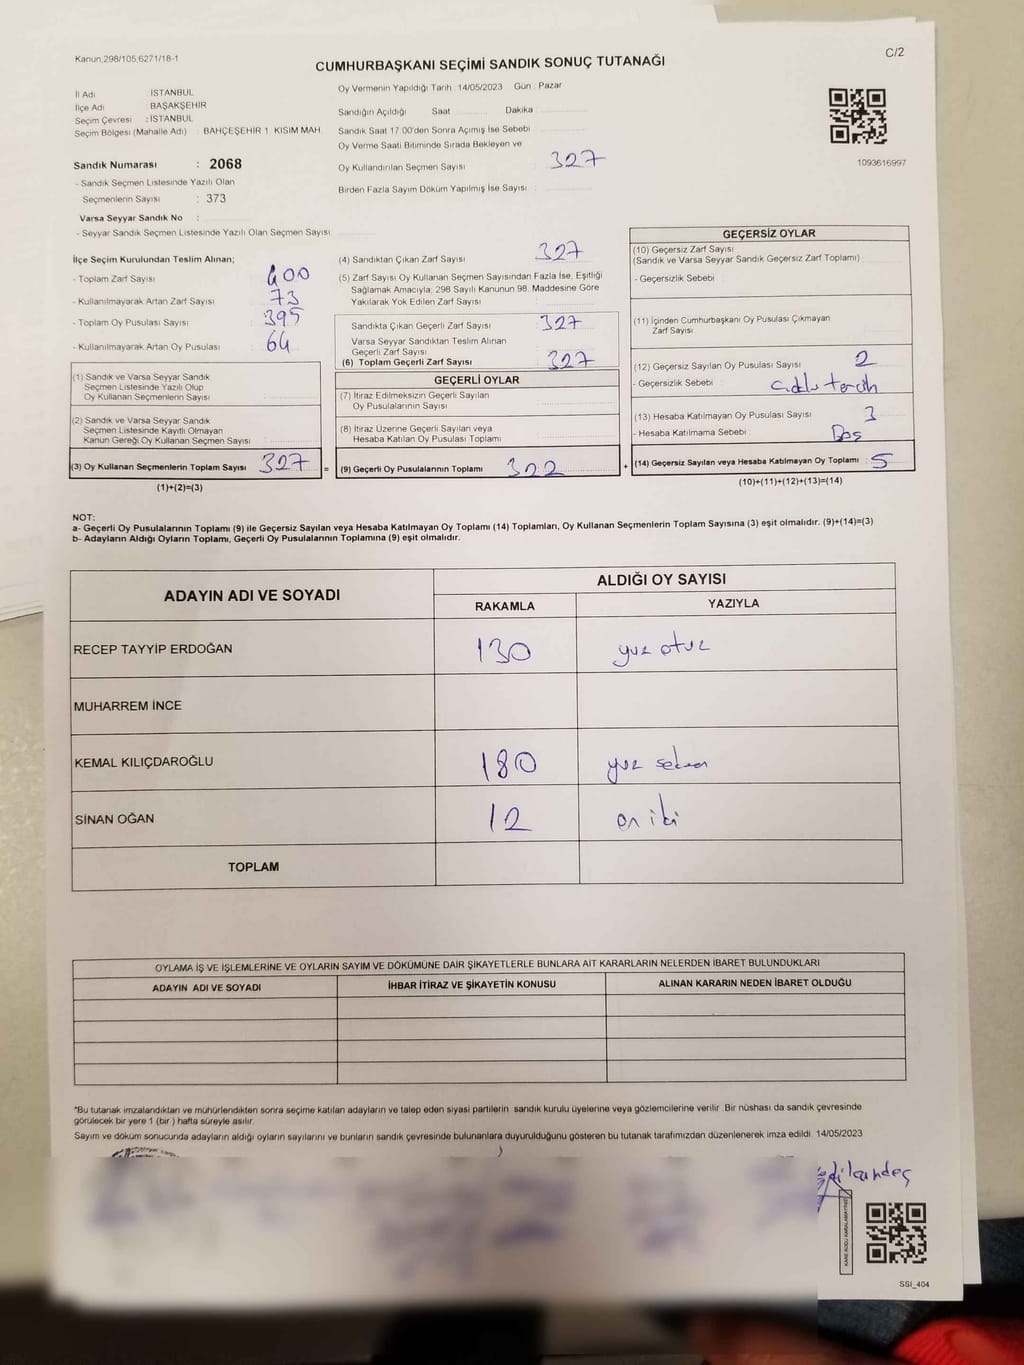 Kanun:298/105;6271/18-1
C/2
CUMHURBAŞKANI SEÇİMİ SANDIK SONUÇ TUTANAĞI
İl Adı : İSTANBUL
İlçe Adı BAŞAKŞEHİR
Seçim Çevresi : İSTANBUL
Seçim Bölgesi (Mahalle Adı) : BAHÇEŞEHİR 1. KISIM MAH.
Sandık Numarası : 2068
- Sandık Seçmen Listesinde Yazılı Olan
Seçmenlerin Sayısı : 373
Varsa Seyyar Sandık No :
- Seyyar Sandık Seçmen Listesinde Yazılı Olan Seçmen Sayısı:
Oy Vermenin Yapıldığı Tarih: 14/05/2023 Gün : Pazar
Sandığın Açıldığı Saat Dakika
Sandık Saat 17:00'den Sonra Açımış İse Sebebi
Oy Verme Saati Bitiminde Sırada Bekleyen ve
Oy Kullandırılan Seçmen Sayısı : 327
Birden Fazla Sayım Döküm Yapılmış İse Sayısı
1093616997
İlçe Seçim Kurulundan Teslim Alınan;
- Toplam Zarf Sayısı : 400
- Kullanılmayarak Artan Zarf Sayısı : 73
- Toplam Oy Pusulası Sayısı : 395
- Kullanılmayarak Artan Oy Pusulası : 64
(1) Sandık ve Varsa Seyyar Sandık
Seçmen Listesinde Yazılı Olup
Oy Kullanan Seçmenlerin Sayısı
(2) Sandık ve Varsa Seyyar Sandık
Seçmen Listesinde Kayıtlı Olmayan
Kanun Gereği Oy Kullanan Seçmen Sayısı
(3) Oy Kullanan Seçmenlerin Toplam Sayısı 327
(1)+(2)=(3)
(4) Sandıktan Çıkan Zarf Sayısı : 327
(5) Zarf Sayısı Oy Kullanan Seçmen Sayısından Fazla İse, Eşitliği
Sağlamak Amacıyla, 298 Sayılı Kanunun 98. Maddesine Göre
Yakılarak Yok Edilen Zarf Sayısı
Sandıkta Çıkan Geçerli Zarf Sayısı : 327
Varsa Seyyar Sandıktan Teslim Alınan
Geçerli Zarf Sayısı
(6) Toplam Geçerli Zarf Sayısı : 327
GEÇERLİ OYLAR
(7) İtiraz Edilmeksizin Geçerli Sayılan
Oy Pusulalarının Sayısı
(8) İtiraz Üzerine Geçerli Sayılan veya
Hesaba Katılan Oy Pusulası Toplamı
= (9) Geçerli Oy Pusulalarının Toplamı 322
GEÇERSİZ OYLAR
(10) Geçersiz Zarf Sayısı
(Sandık ve Varsa Seyyar Sandık Geçersiz Zarf Toplamı)
- Geçersizlik Sebebi
(11) İçinden Cumhurbaşkanı Oy Pusulası Çıkmayan
Zarf Sayısı
(12) Geçersiz Sayılan Oy Pusulası Sayısı : 2
- Geçersizlik Sebebi : tercih
(13) Hesaba Katılmayan Oy Pusulası Sayısı : 3
- Hesaba Katılmama Sebebi : Boş
+ (14) Geçersiz Sayılan veya Hesaba Katılmayan Oy Toplamı : 5
(10)+(11)+(12)+(13)=(14)
NOT:
a- Geçerli Oy Pusulalarının Toplamı (9) ile Geçersiz Sayılan veya Hesaba Katılmayan Oy Toplamı (14) Toplamları, Oy Kullanan Seçmenlerin Toplam Sayısına (3) eşit olmalıdır. (9)+(14)=(3)
b- Adayların Aldığı Oyların Toplamı, Geçerli Oy Pusulalarının Toplamına (9) eşit olmalıdır.
ADAYIN ADI VE SOYADI
ALDIĞI OY SAYISI
RAKAMLA YAZIYLA
RECEP TAYYİP ERDOĞAN 130 yuz otuz
MUHARREM İNCE
KEMAL KILIÇDAROĞLU 180 yuz seksen
SİNAN OĞAN 12 on iki
TOPLAM
OYLAMA İŞ VE İŞLEMLERİNE VE OYLARIN SAYIM VE DÖKÜMÜNE DAİR ŞİKAYETLERLE BUNLARA AİT KARARLARIN NELERDEN İBARET BULUNDUKLARI
ADAYIN ADI VE SOYADI İHBAR İTİRAZ VE ŞİKAYETİN KONUSU ALINAN KARARIN NEDEN İBARET OLDUĞU
*Bu tutanak imzalandıktan ve mühürlendikten sonra seçime katılan adayların ve talep eden siyasi partilerin sandık kurulu üyelerine veya gözlemcilerine verilir. Bir nüshası da sandık çevresinde
görülecek bir yere 1 (bir) hafta süreyle asılır.
Sayım ve döküm sonucunda adayların aldığı oyların sayılarını ve bunların sandık çevresinde bulunanlara duyurulduğunu gösteren bu tutanak tarafımızdan düzenlenerek imza edildi. 14/05/2023
KARE KODU KARALAMAYINIZ
SSI_404